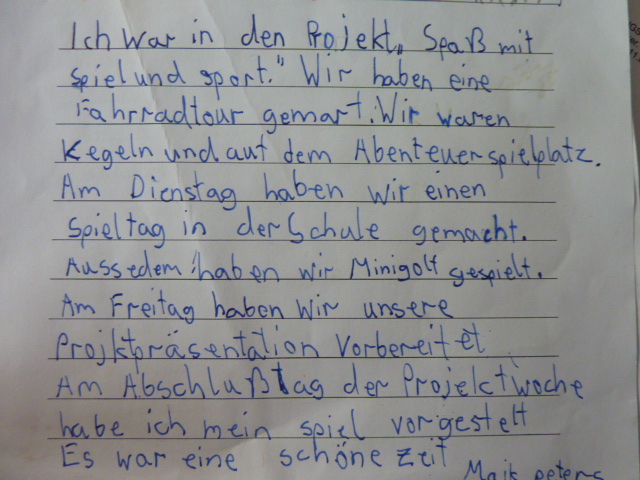 Ich war in den Projekt„ Spaß mit
spiel und sport." Wir haben eine
Fahrradtour gemart. Wir waren
Kegeln und auf dem Abenteuerspielplatz.
Am Dienstag haben wir einen
Spieltag in der Schule gemacht.
Aussedem haben wir Minigolf gespielt.
Am Freitag haben wir unsere
Projktpräsentation vorbereitet
Am Abschlußtag der Projektwoche
habe ich mein spiel vorgestelt
Es war eine schöne zeit
Maik peters